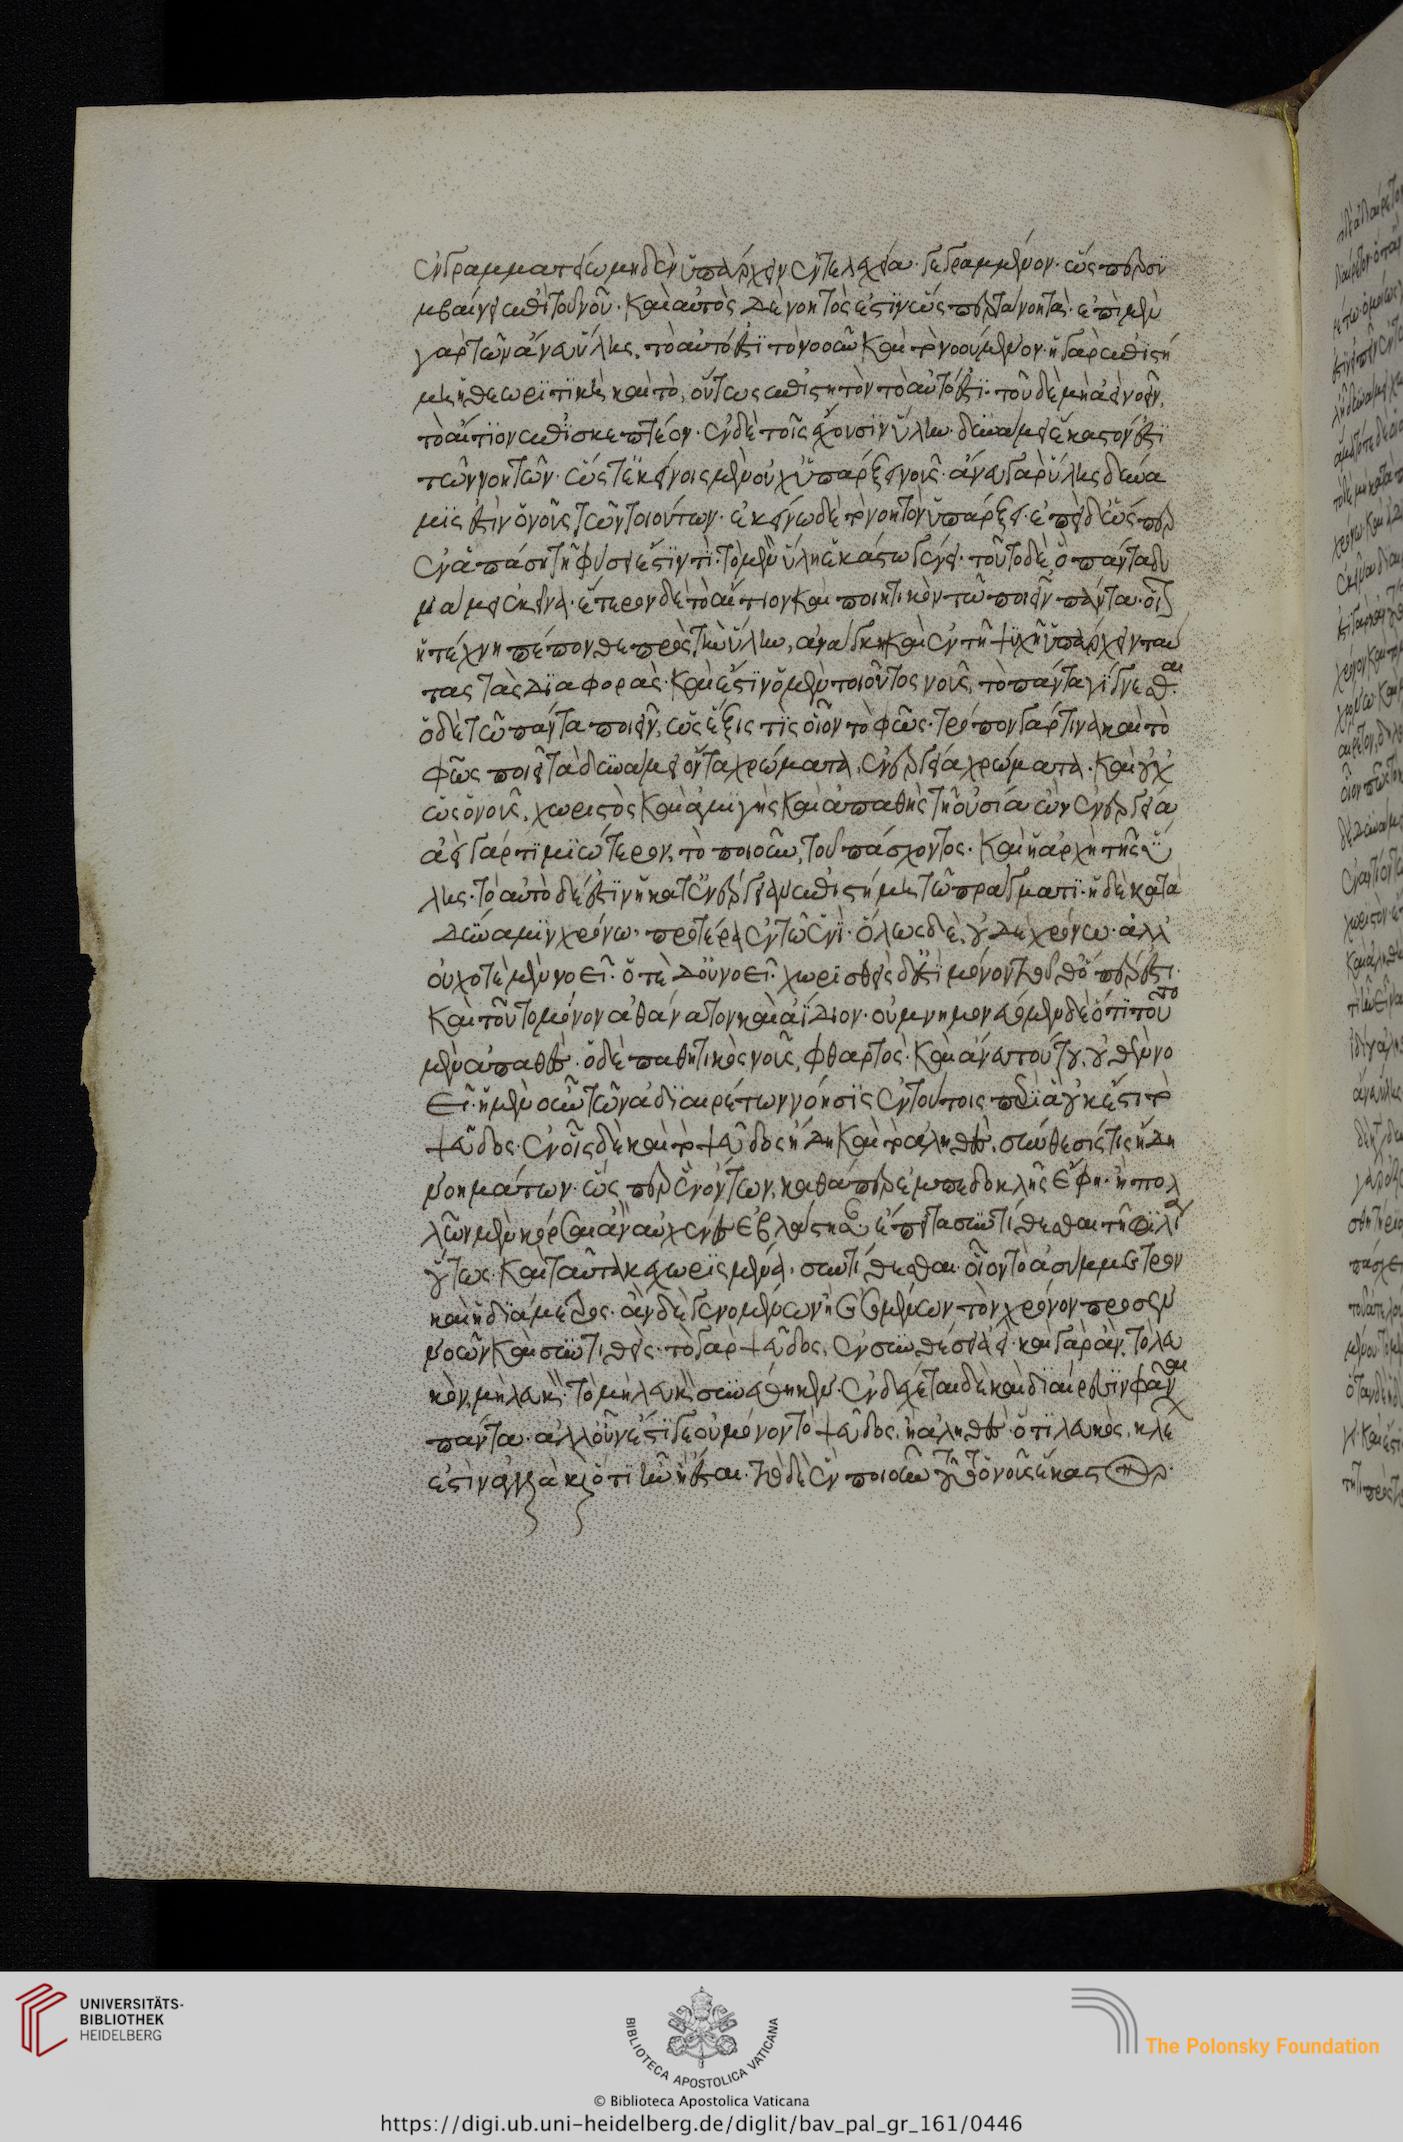 ἐν γραμματείω μηδὲν ὑπάρχειν ἐντελεχεία γεγραμμένον· ὥσπερ συ
μβαίνει ἐπὶ τοῦ νοῦ· καὶ αὐτὸς δὲ νοητός ἐστιν ὥσπερ τὰ νοητά· ἐπὶ μὲν
γὰρ τῶν ἄνευ ὕλης, τὸ αὐτό ἐστι τὸ νοοῦν καὶ τὸ νοούμενον· ἡ γὰρ ἐπιστή
μη ἡ θεωρητικὴ καὶ τὸ οὕτως ἐπιστητὸν τὸ αὐτό ἐστι· τοῦ δὲ μὴ ἀεὶ νοεῖν,
τὸ αἴτιον ἐπισκεπτέον· ἐν δὲ τοῖς ἔχουσιν ὕλην· δυνάμει ἕκαστον ἐστι
τῶν νοητῶν· ὥστ' ἐκείνοις μὲν οὐχ ὑπάρξει νοῦς· ἄνευ γὰρ ὕλης δύνα
μις ἐστὶν ὁ νοῦς τῶν τοιούτων· ἐκείνω δὲ τὸ νοητὸν ὑπάρξει· ἐπεὶ δ' ὥσπερ
ἐν ἁπάση τῇ φύσει ἐστίν τι· τὸ μὲν ὕλη ἑκάστω γένει· τοῦτο δὲ, ὃ πάντα δυ
νάμει ἐκεῖνα· ἕτερον δὲ τὸ αἴτιον καὶ ποιητικὸν τῶ ποιεῖν πάντα· οἷον
ἡ τέχνη πέπονθε πρὸς τὴν ὕλην, ἀνάγκη καὶ ἐν τῇ ψυχῇ ὑπάρχειν ταύ
τας τὰς διαφοράς· καὶ ἔστιν ὁ μὲν τοιοῦτος νοῦς, τὸ πάντα γίγνεσθαι·
ὁ δὲ τῶ πάντα ποιεῖν, ὡς ἕξις τις οἷον τὸ φῶς· τρόπον γάρ τινα καὶ τὸ
φῶς ποιεῖ τὰ δυνάμει ὄντα χρώματα, ἐνεργεία χρώματα· καὶ οὐχ
ὡς ὁ νοῦς, χωριστὸς καὶ ἀμιγὴς καὶ ἀπαθὴς τῇ οὐσία ὢν ἐνεργεία
ἀεὶ γάρ τιμιώτερον, τὸ ποιοῦν, τοῦ πάσχοντος· καὶ ἡ ἀρχὴ τῆς ὕ
λης· τὸ αὐτὸ δέ ἐστιν ἡ κατ' ἐνέργειαν ἐπιστήμη τῶ πράγματι· ἡ δὲ κατὰ
δύναμιν χρόνω· προτέρα ἐν τῶ ἑνὶ· ὅλως δὲ, οὐδὲ χρόνω· ἀλλ'
οὐχ ὁτὲ μὲν νοεῖ· ὁτὲ δ' οὐ νοεῖ· χωρισθεὶς δ' ἐστὶ μόνον τοῦθ' ὅπερ ἐστι·
καὶ τοῦτο μόνον ἀθάνατον καὶ ἀΐδιον· οὐ μνημονεύομεν δὲ ὅτι τοῦτο
μὲν ἀπαθές· ὁ δὲ παθητικὸς νοῦς, φθαρτός· καὶ ἄνευ τούτου, οὐθὲν νο
εῖ· ἡ μὲν οὖν τῶν ἀδιαιρέτων νόησις ἐν τούτοις περὶ ἃ οὐκ ἔστι τὸ
ψεῦδος· ἐν οἷς δὲ καὶ τὸ ψεῦδος ἤδη καὶ τὸ ἀληθές, σύνθεσίς τις ἤδη
νοημάτων· ὥσπερ ἓν ὄντων, καθάπερ ἐμπεδοκλῆς ἔφη· ἧ πολ
λῶν μὲν κόρσαι ἀναύχενες ἐβλάστησαν ἔπειτα συντίθεσθαι τῇ φιλία
οὕτως καὶ ταῦτα κεχωρισμένα συντίθεσθαι· οἷον τὸ ἀσύμμετρον
καὶ ἡ διάμετρος· ἂν δὲ γενομένων ἢ ἐσομένων τὸν χρόνον προσεν
νοῶν καὶ συντιθεὶς· τὸ γὰρ ψεῦδος, ἐν συνθέσει ἀεί· καὶ γὰρ ἂν, τὸ λευ
κὸν, μὴ λευκὸν· τὸ μὴ λευκὸν συνέθηκεν· ἐνδέχεται δὲ καὶ διαίρεσιν φάναι
πάντα· ἀλλ' οὖν ἔστι γε οὐ μόνον τὸ ψεῦδος, ἢ ἀληθές· ὅτι λευκὸς, κλέων
ἐστὶν ἀλλὰ καὶ ὅτι ἦν ἢ ἔσται· τὸ δὲ ἓν ποιοῦν τοῦτο ὁ νοῦς ἕκαστον
UNIVERSITÄTS-
BIBLIOTHEK
HEIDELBERG
BIBLIOTECA APOSTOLICA VATICANA
The Polonsky Foundation
© Biblioteca Apostolica Vaticana
https://digi.ub.uni-heidelberg.de/diglit/bav_pal_gr_161/0446